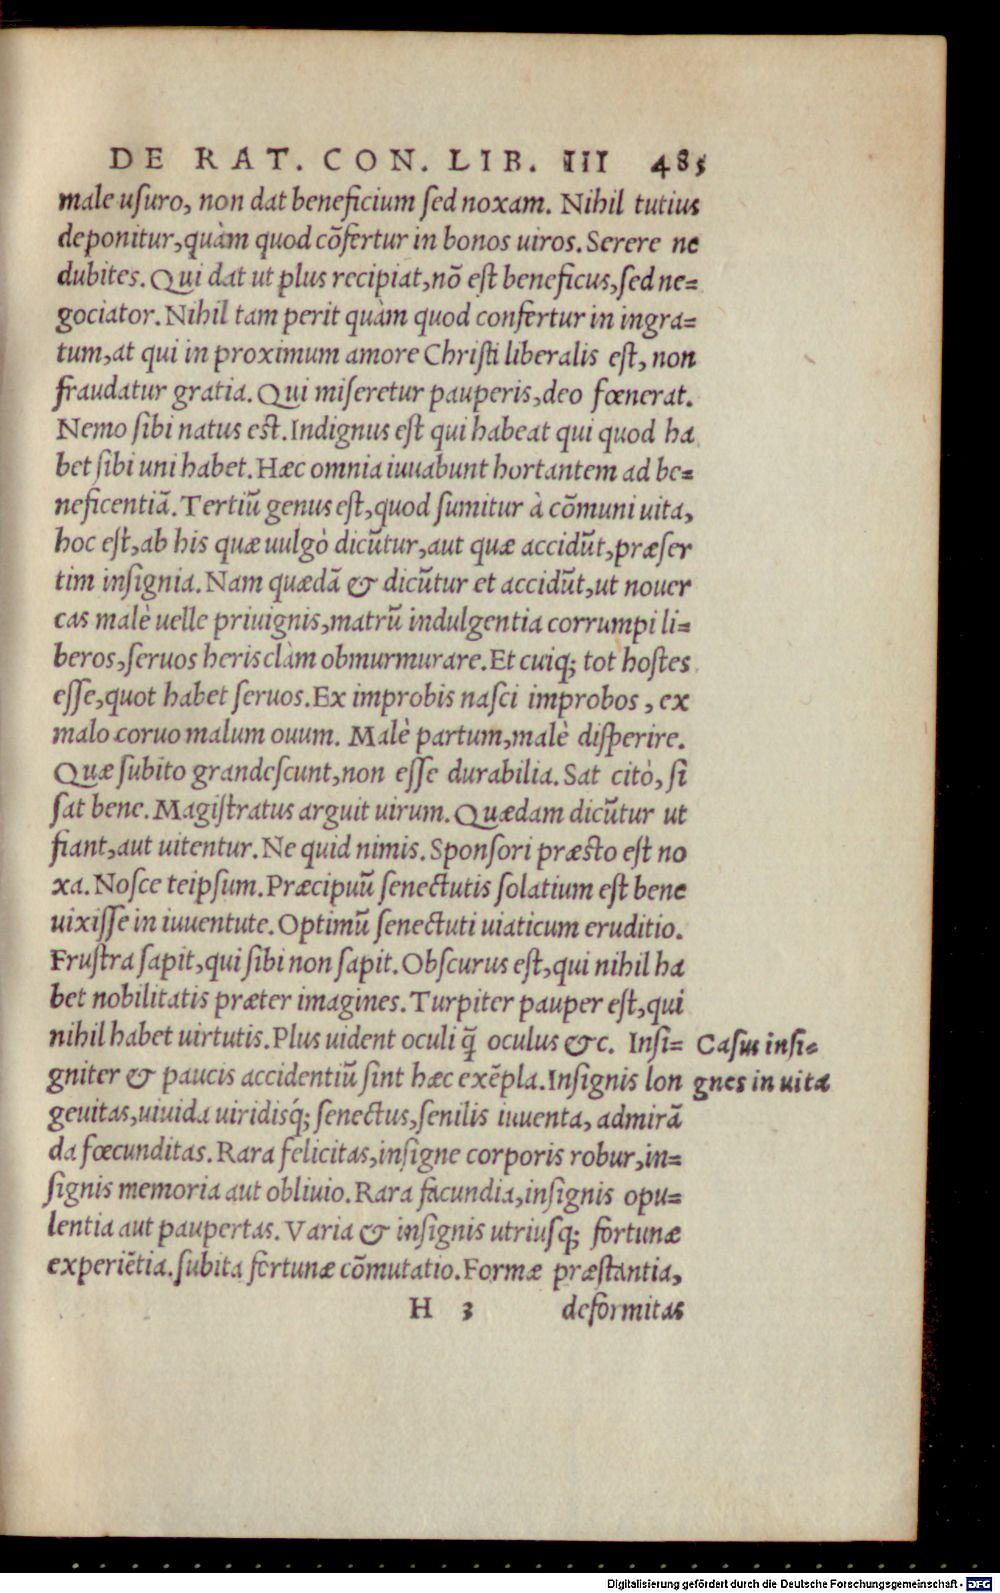 DE RAT. CON. LIB. III 485
male usuro, non dat beneficium sed noxam. Nihil tutius
deponitur, quàm quod cõfertur in bonos uiros. Serere ne
dubites. Qui dat ut plus recipiat, nõ est beneficus, sed ne=
gociator. Nihil tam perit quàm quod confertur in ingra=
tum, at qui in proximum amore Christi liberalis est, non
fraudatur gratia. Qui miseretur pauperis, deo fœnerat.
Nemo sibi natus est. Indignus est qui habeat qui quod ha
bet sibi uni habet. Hæc omnia iuuabunt hortantem ad be=
neficentiã. Tertiũ genus est, quod sumitur à cõmuni uita,
hoc est, ab his quæ uulgò dicũtur, aut quæ accidũt, præser
tim insignia. Nam quædã & dicũtur et accidũt, ut nouer
cas malè uelle priuignis, matrũ indulgentia corrumpi li=
beros, seruos heris clàm obmurmurare. Et cuiq; tot hostes
esse, quot habet seruos. Ex improbis nasci improbos, ex
malo coruo malum ouum. Malè partum, malè disperire.
Quæ subito grandescunt, non esse durabilia. Sat citò, si
sat bene. Magistratus arguit uirum. Quædam dicũtur ut
fiant, aut uitentur. Ne quid nimis. Sponsori præsto est no
xa. Nosce teipsum. Præcipuũ senectutis solatium est bene
uixisse in iuuentute. Optimũ senectuti uiaticum eruditio.
Frustra sapit, qui sibi non sapit. Obscurus est, qui nihil ha
bet nobilitatis præter imagines. Turpiter pauper est, qui
nihil habet uirtutis. Plus uident oculi q̃ oculus &c. Insi=
Casus insi=
gniter & paucis accidentiũ sint hæc exẽpla. Insignis lon
gnes in uita
geuitas, uiuida uiridisq́; senectus, senilis iuuenta, admirã
da fœcunditas. Rara felicitas, insigne corporis robur, in=
signis memoria aut obliuio. Rara facundia, insignis opu=
lentia aut paupertas. Varia & insignis utriusq; fortunæ
experiẽtia. subita fortunæ cõmutatio. Formæ præstantia,
H 3 deformitas
Digitalisierung gefördert durch die Deutsche Forschungsgemeinschaft - DFG